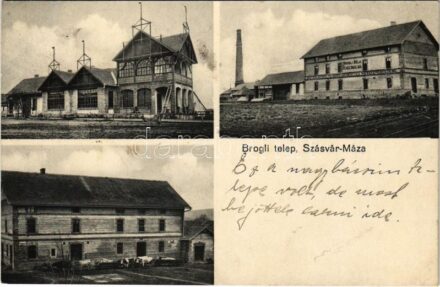 Brogli telep, Szásvár-Máza
Ez a nagybácsim te-
lepe volt, de most
bejöttek lakni ide.